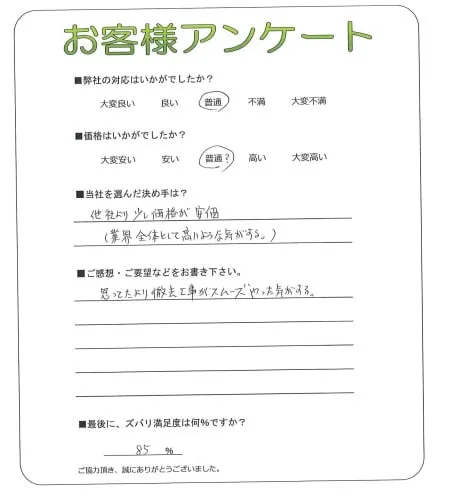 お客様アンケート
■弊社の対応はいかがでしたか？
大変良い 良い 普通 不満 大変不満
■価格はいかがでしたか？
大変安い 安い 普通？ 高い 大変高い
■当社を選んだ決め手は？
他社より少し価格が安価
（業界全体として高いような気がする。）
■ご感想・ご要望などをお書き下さい。
思ってたより撤去工事がスムーズやった気がする。
■最後に、ズバリ満足度は何％ですか？
85 ％
ご協力頂き、誠にありがとうございました。